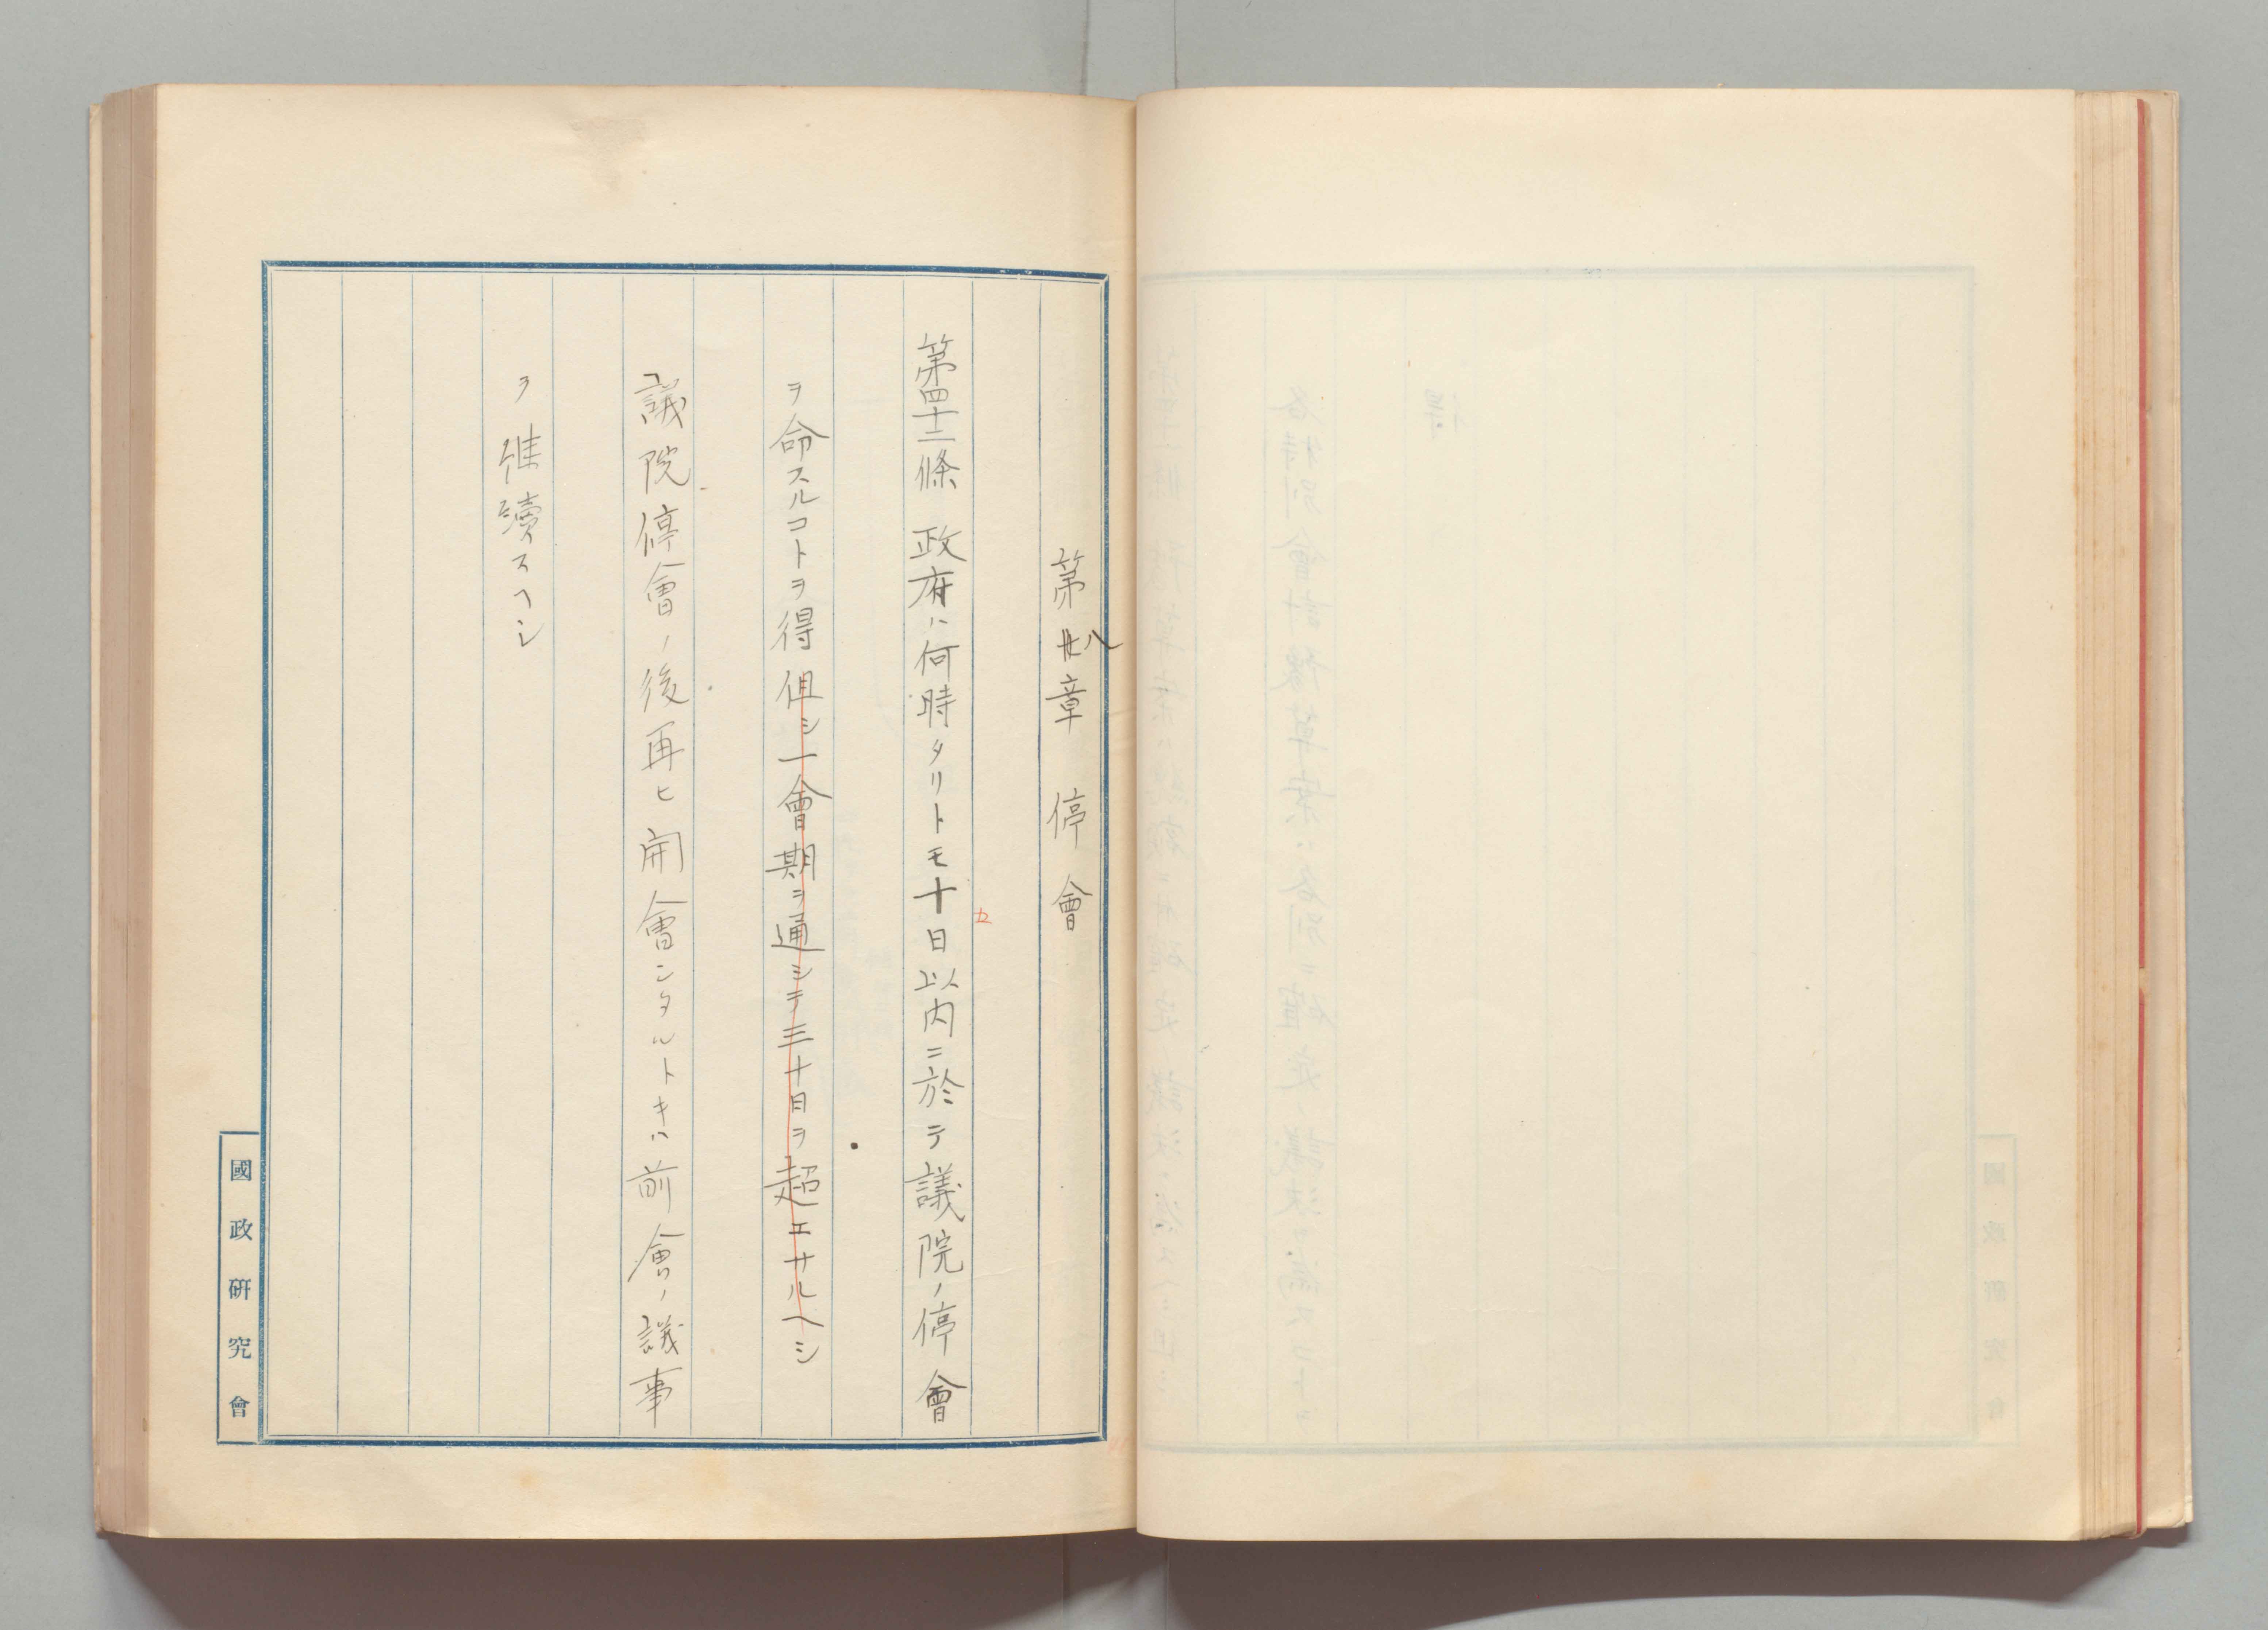 第八章 停會
第四十二條 政府ハ何時タリトモ十日以内ニ於テ議院ノ停會
ヲ命スルコトヲ得但シ一會期ヲ通シテ三十日ヲ超エサルヘシ
議院停會ノ後再ヒ開會シタルトキハ前會ノ議事
ヲ継續スヘシ
國政研究會